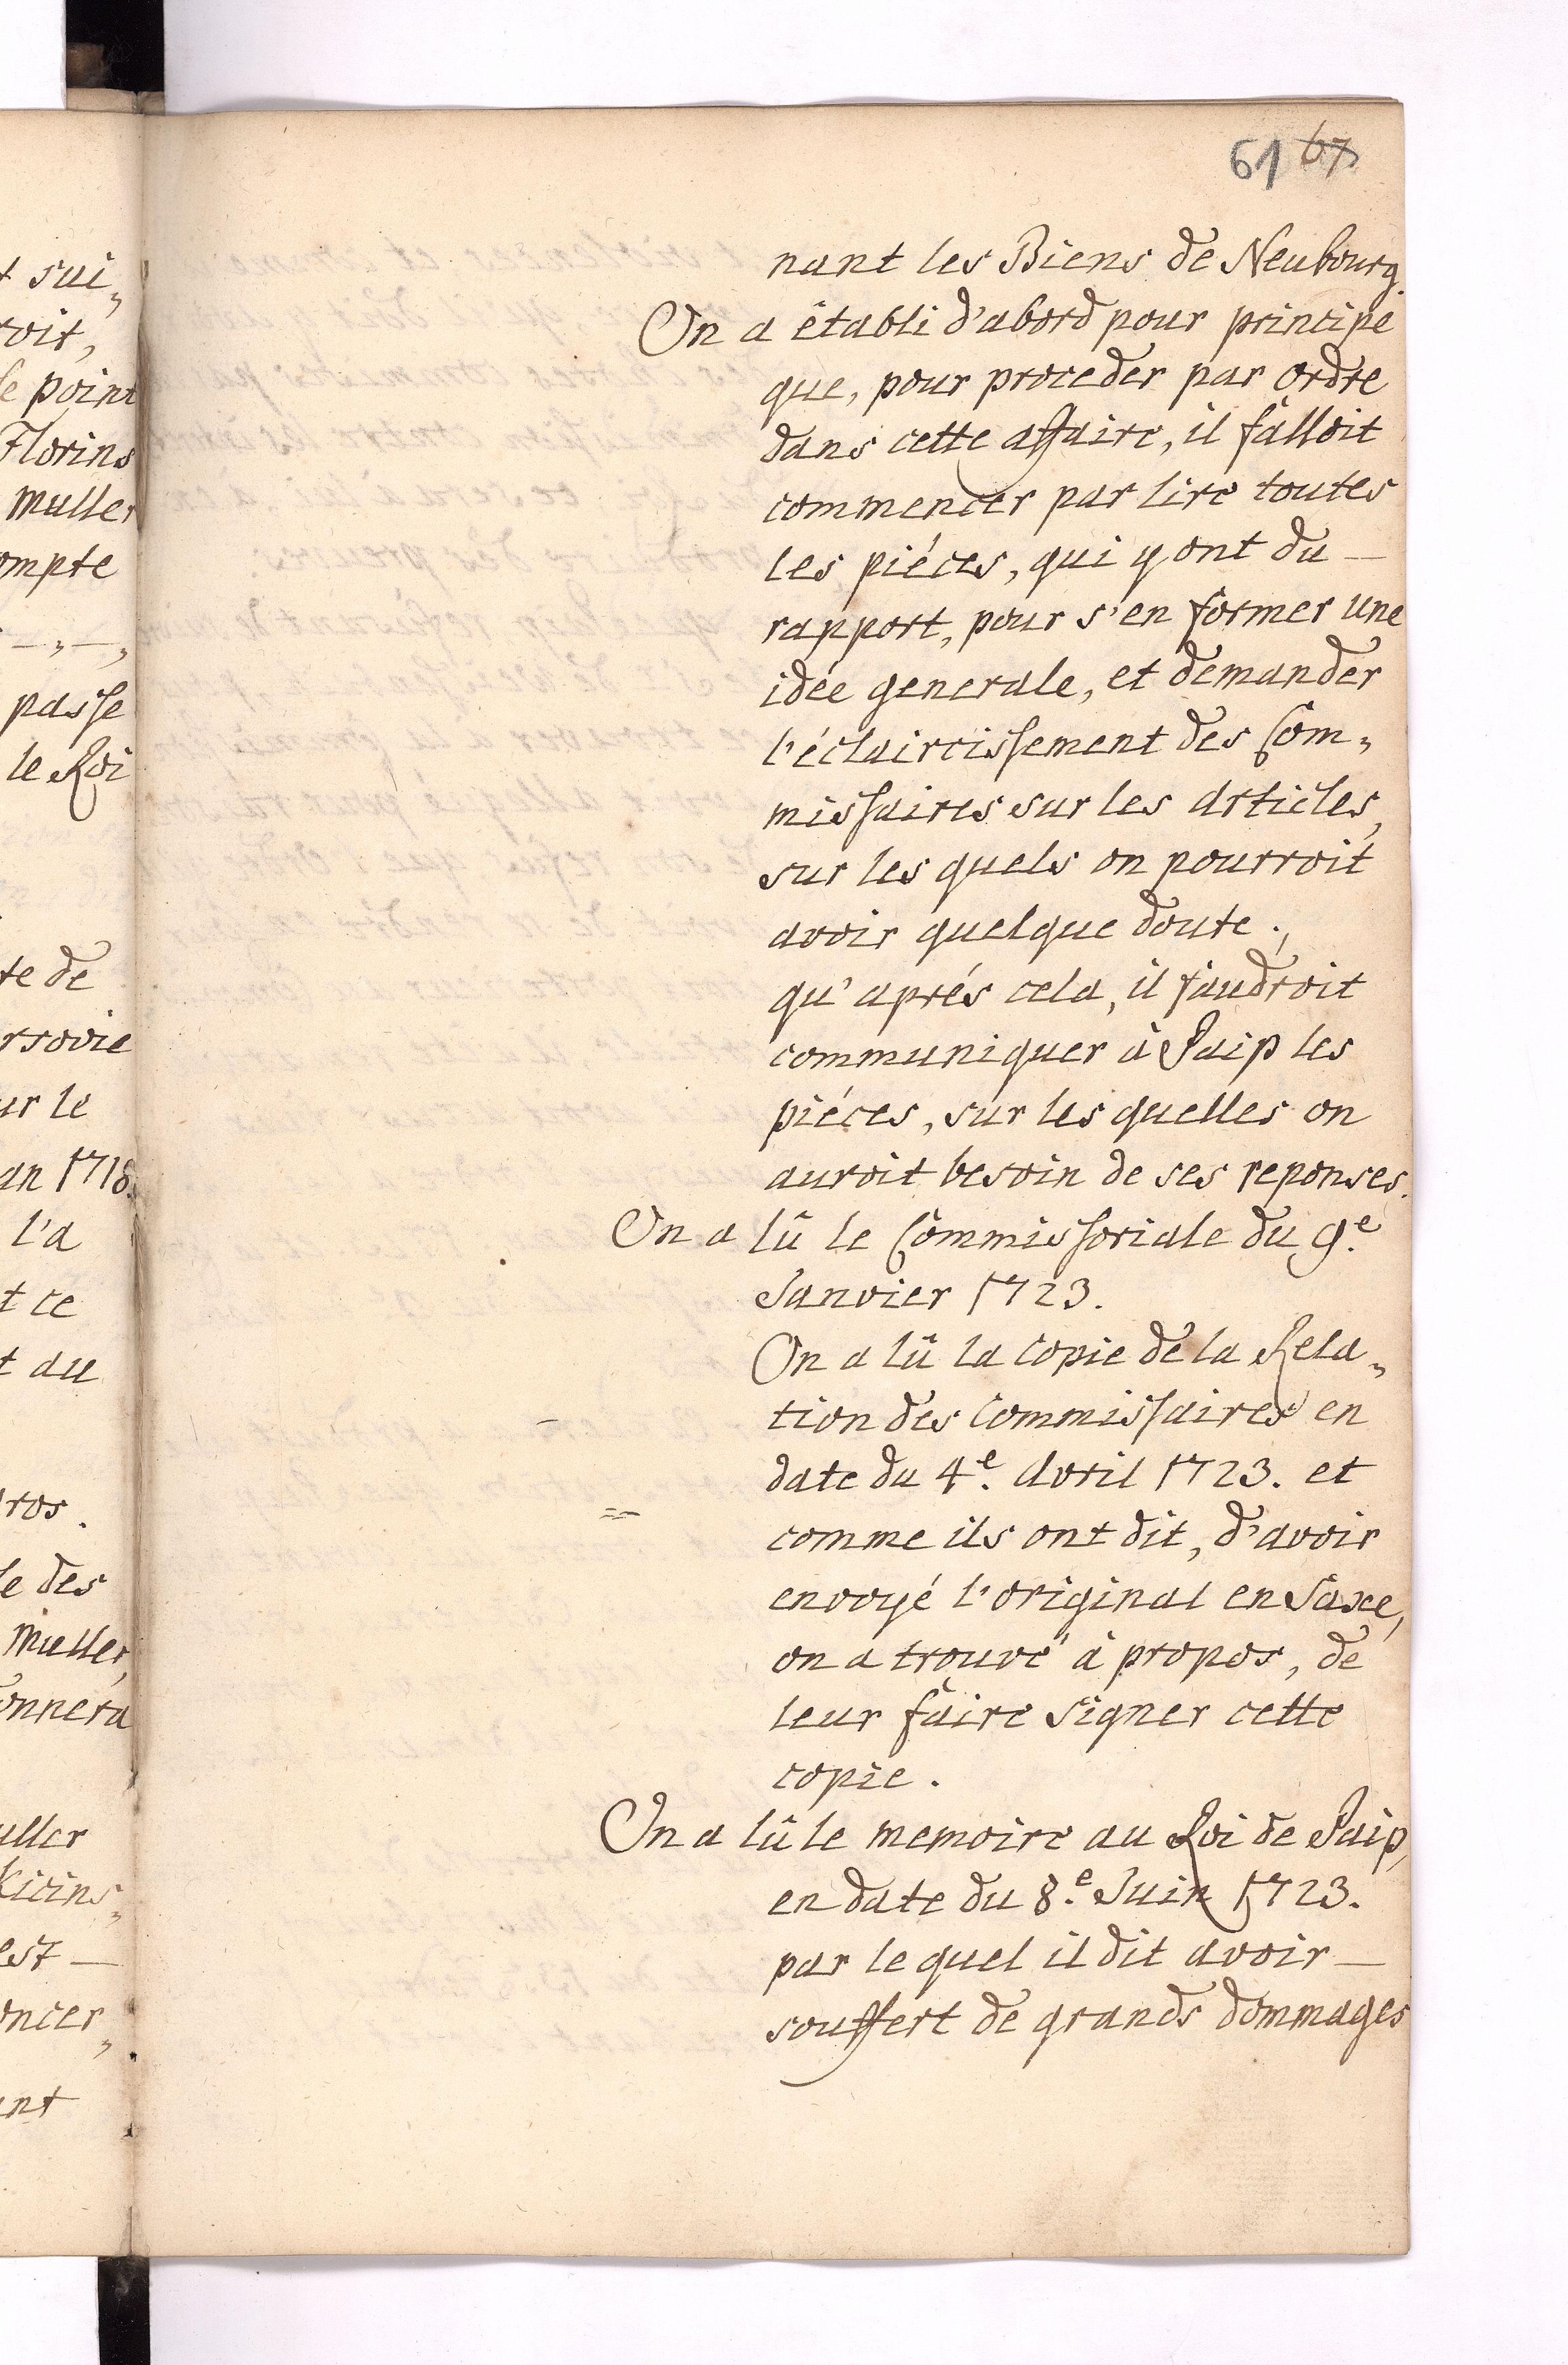 61 67
nant les Biens de Neubourg.
On a établi d'abord pour principe
que, pour proceder par ordre
dans cette affaire, il falloit
commencer par lire toutes
les piéces, qui y ont du —
rapport, pour s'en former une
idée generale, et demander
l'éclaircissement des Com„
missaires sur les Articles,
sur les quels on pourroit
avoir quelque doute.,
qu'aprés cela, il faudroit
communiquer à Paip les
piéces, sur les quelles on
auroit besoin de ses reponses.
On a lû le Commissoriale du 9.e
Janvier 1723.
On a lû la copie de la Rela„
tion des Commissaires en
date du 4.e Avril 1723. et
comme ils ont dit, d'avoir
envoyé l'original en Saxe,
on a trouvé à propos, de
leur faire signer cette
copie.
On a lû le memoire au Roi de Paip,
en date du 8.e Juin 1723.
par le quel il dit avoir —
souffert de grands dommages
t sui„
roit,
le point
Florins
Muller
ompte
— „ — „
passe
le Roi
te de
rsovie
ur le
an 1718.
l'a
t ce
t au
ros.
le des
Muller,
onnera
uller
Kicins„
est —
oncer„
ant